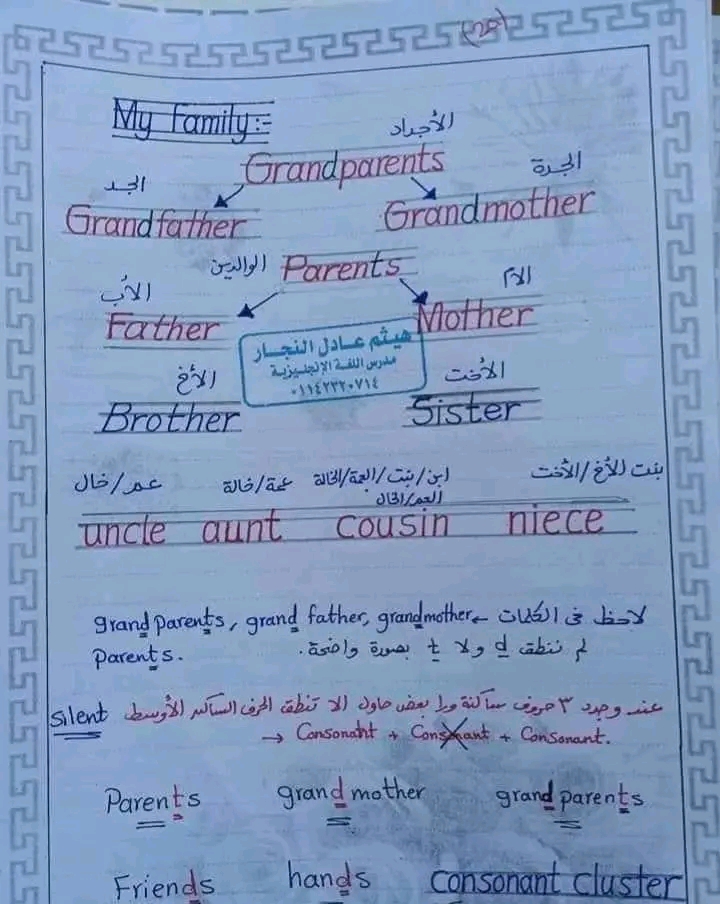 (٢٥)
My family:-
الأجداد
Grandparents
الجد
الجدة
Grandfather
Grandmother
الوالدين
Parents
الأب
الأم
Father
Mother
هيثم عادل النجار
مدرس اللغة الإنجليزية
٠١١٤٢٣٢٠٧١٤
الأخ
الأخت
Brother
Sister
عم/خال
عمة/خالة
ابن/بنت/العمة/الخالة
العم/الخال
بنت الأخ/الأخت
uncle aunt cousin niece
لاحظ فى الكلمات ← grandparents, grand father, grandmother
parents. لم ننطق d ولا t بصورة واضحة.
silent عند وجود ٣ حروف ساكنة ورا بعض حاول الا تنطق الحرف الساكن الأوسط
→ Consonant + Consonant + Consonant.
Parents grandmother grandparents
Friends hands consonant cluster